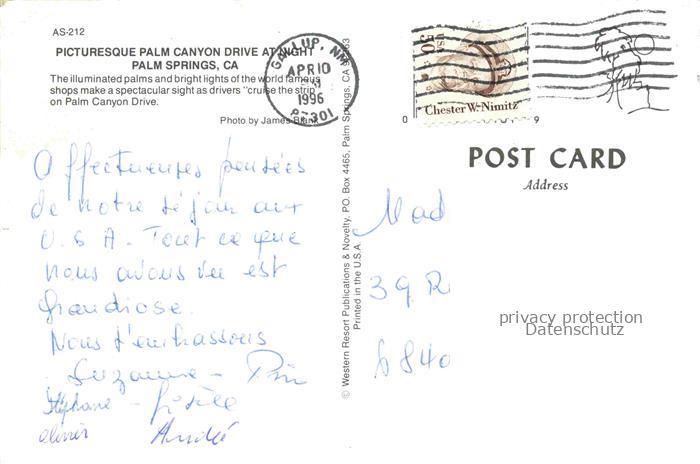 AS-212
PICTURESQUE PALM CANYON DRIVE AT NIGHT
PALM SPRINGS, CA
The illuminated palms and bright lights of the world famous
shops make a spectacular sight as drivers "cruise the strip"
on Palm Canyon Drive.
Photo by James Blank
GALLUP, NM
APR 10
1996
87301
50
USA
Chester W. Nimitz
POST CARD
Address
Affectueuses pensées
de notre séjour aux
U.S.A. Tout ce que
nous avons vu est
grandiose.
Nous t'embrassons
Suzanne -
Stéphane - Gisèle
Olivier André
© Western Resort Publications & Novelty, PO. Box 4465, Palm Springs, CA 92263
Printed in the U.S.A.
Mad
39 R
6840
privacy protection
Datenschutz